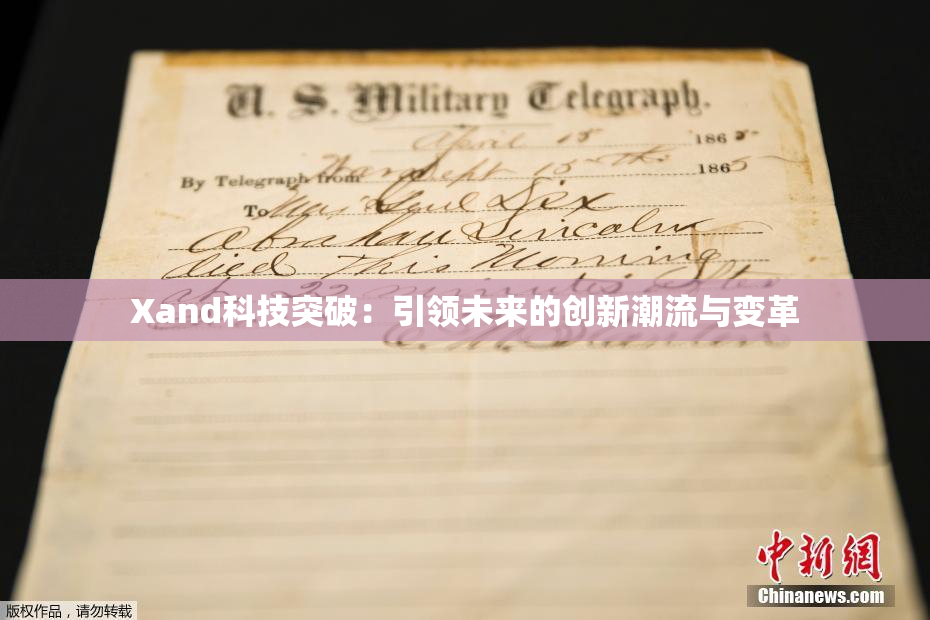 U. S. Military Telegraph.
April 15 1865
By Telegraph from War Dept 15th 1865
To Maj Genl Dix
Abraham Lincoln
died this Morning
at 22 minutes after
Xand科技突破：引领未来的创新潮流与变革
E. M. Stanton
中新网
Chinanews.com
版权作品，请勿转载